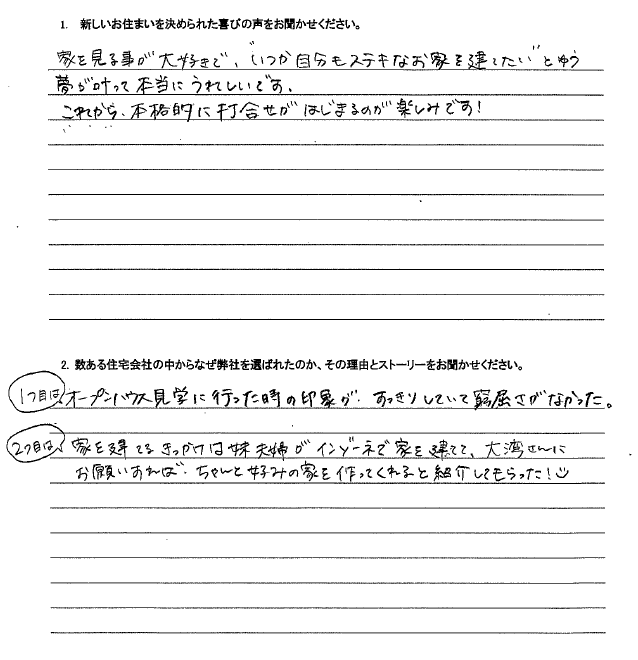 1. 新しいお住まいを決められた喜びの声をお聞かせください。
家を見る事が大好きで、"いつか自分もステキなお家を建てたい"とゆう
夢が叶って本当にうれしいです。
これから、本格的に打合せがはじまるのが楽しみです!
2. 数ある住宅会社の中からなぜ弊社を選ばれたのか、その理由とストーリーをお聞かせください。
1つ目は、オープンハウス見学に行った時の印象が、すっきりしていて窮屈さがなかった。
2つ目は、家を建てるきっかけは妹夫婦がインゾーネで家を建てて、大湾さんに
お願いすれば、ちゃんと好みの家を作ってくれると紹介してもらった!